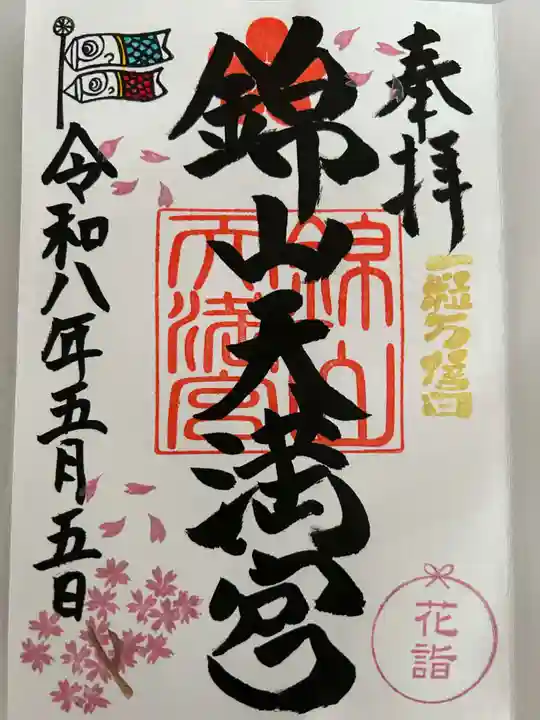 奉拝
一粒万倍日
花詣
錦山天満宮
錦山
天満宮
令和八年五月五日